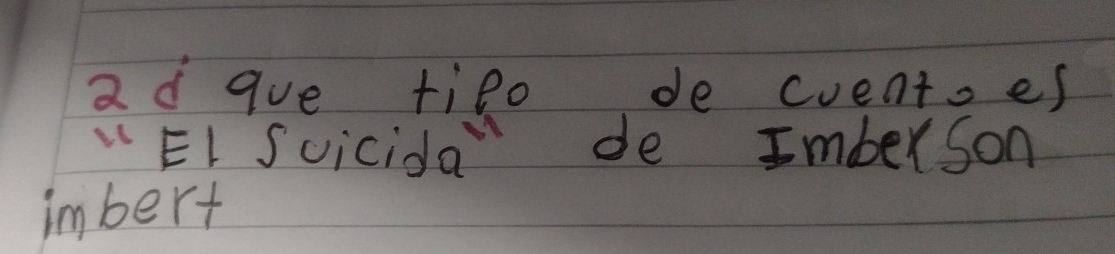 2 d que tipo de cuento es
"El Suicida" de Imberson
imbert